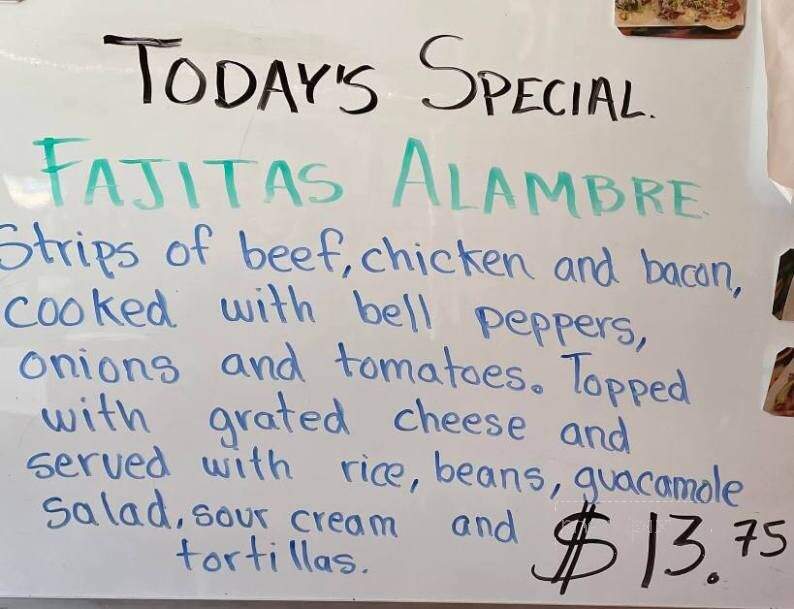 TODAY'S SPECIAL.
FAJITAS ALAMBRE.
Strips of beef, chicken and bacon,
cooked with bell peppers,
onions and tomatoes. Topped
with grated cheese and
served with rice, beans, guacamole
salad, sour cream and
tortillas.
$13.75